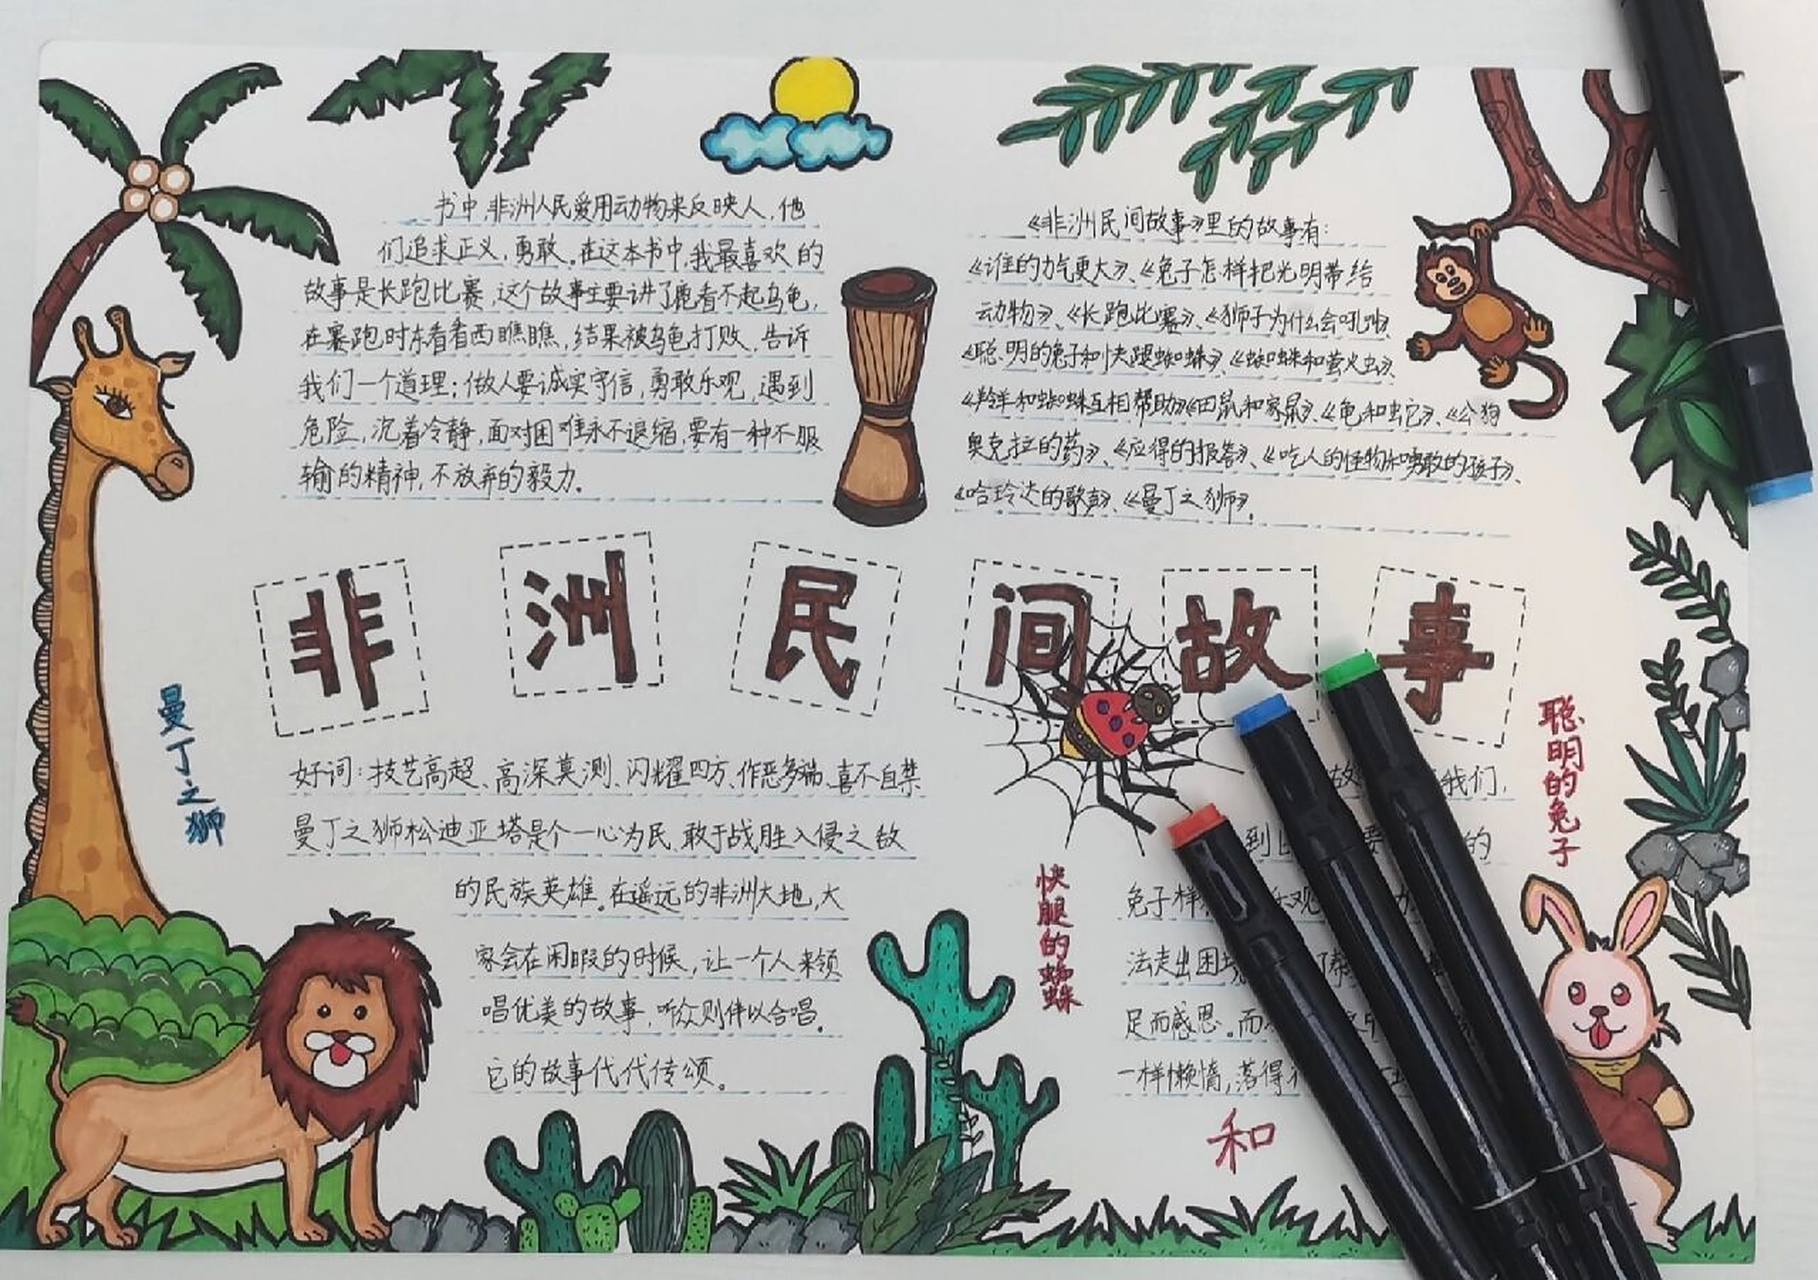 书中,非洲人民爱用动物来反映人,他
们追求正义,勇敢。在这本书中,我最喜欢的
故事是长跑比赛,这个故事主要讲了鹿看不起乌龟,
在赛跑时东看看西瞧瞧,结果被乌龟打败,告诉
我们一个道理:做人要诚实守信,勇敢乐观,遇到
危险,沉着冷静,面对困难永不退缩,要有一种不服
输的精神,不放弃的毅力。
《非洲民间故事》里的故事有:
《谁的力气更大》、《兔子怎样把光明带给
动物》、《长跑比赛》、《狮子为什么会吼叫》、
《聪明的兔子和快腿蜘蛛》、《蜘蛛和萤火虫》、
《羚羊和蜘蛛互相帮助》《田鼠和家鼠》、《龟和蛇》、《公狗
奥克拉的药》、《应得的报答》、《吃人的怪物和勇敢的孩子》、
《哈玲达的歌声》、《曼丁之狮》。
非洲民间故事
曼丁之狮
好词:技艺高超、高深莫测、闪耀四方、作恶多端、喜不自禁
曼丁之狮松迪亚塔是个一心为民,敢于战胜入侵之敌
的民族英雄。在遥远的非洲大地,大
家会在闲暇的时候,让一个人来领
唱优美的故事,听众则伴以合唱。
它的故事代代传颂。
快腿的蜘蛛
故 我们,
到 要 的
兔子样 乐观
法走出困
足而感恩。而
一样懒惰,落得
和
聪明的兔子